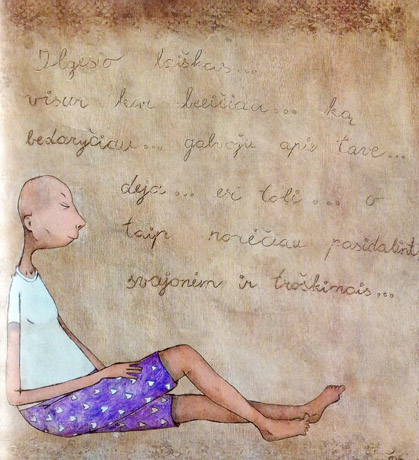 Ilgesio laiškas...
visur kur beeičiau... ką
bedaryčiau... galvoju apie tave...
deja... esi toli... o
taip norėčiau pasidalint
svajonėm ir troškimais...